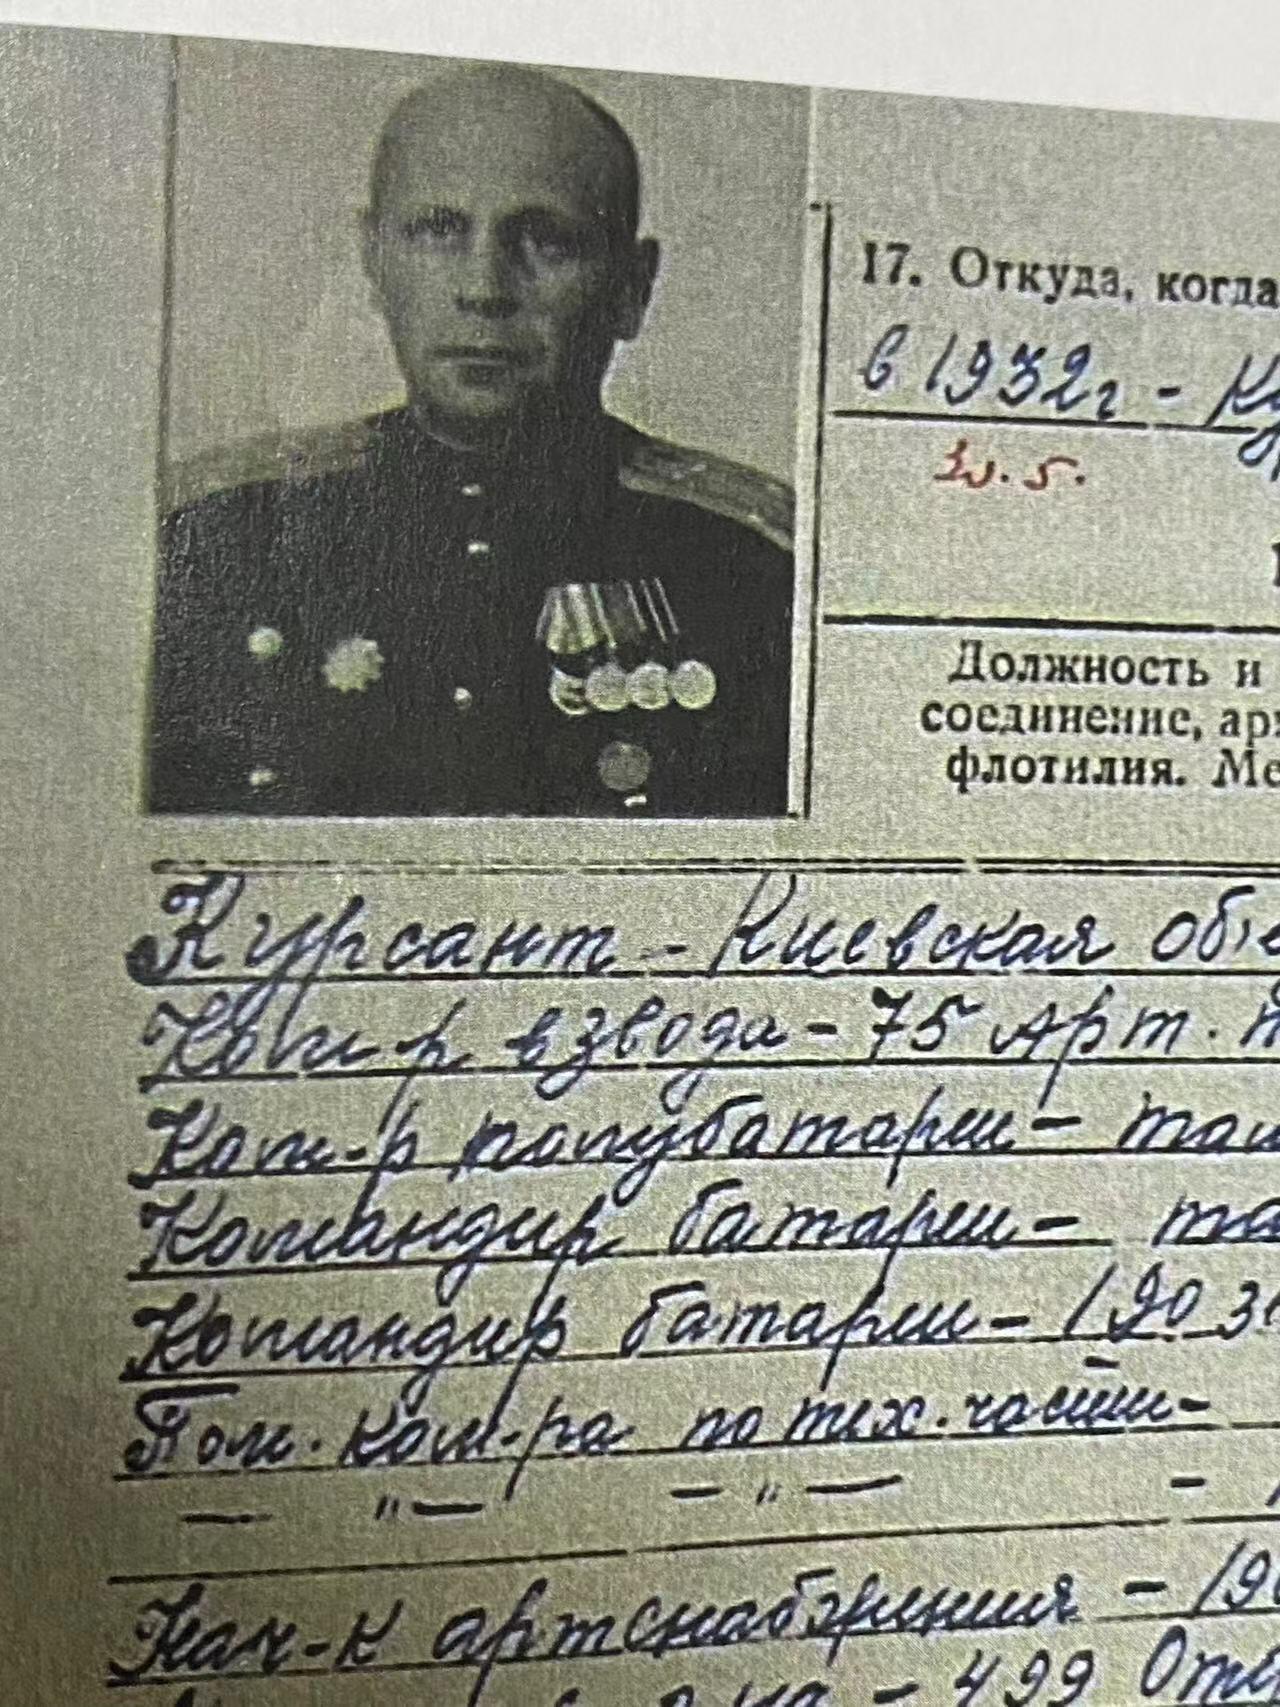 17. Откуда, когда
в 1932г -
Должность и
соединение,
флотилия.
Курсант - Киевская
Ком-р взвода - 75 Арт.
Ком-р полубатареи -
Командир батареи -
Командир батареи - 190
Пом. ком-ра по тех. части -
— "— — "— -
Нач-к артснабжения -
- 499